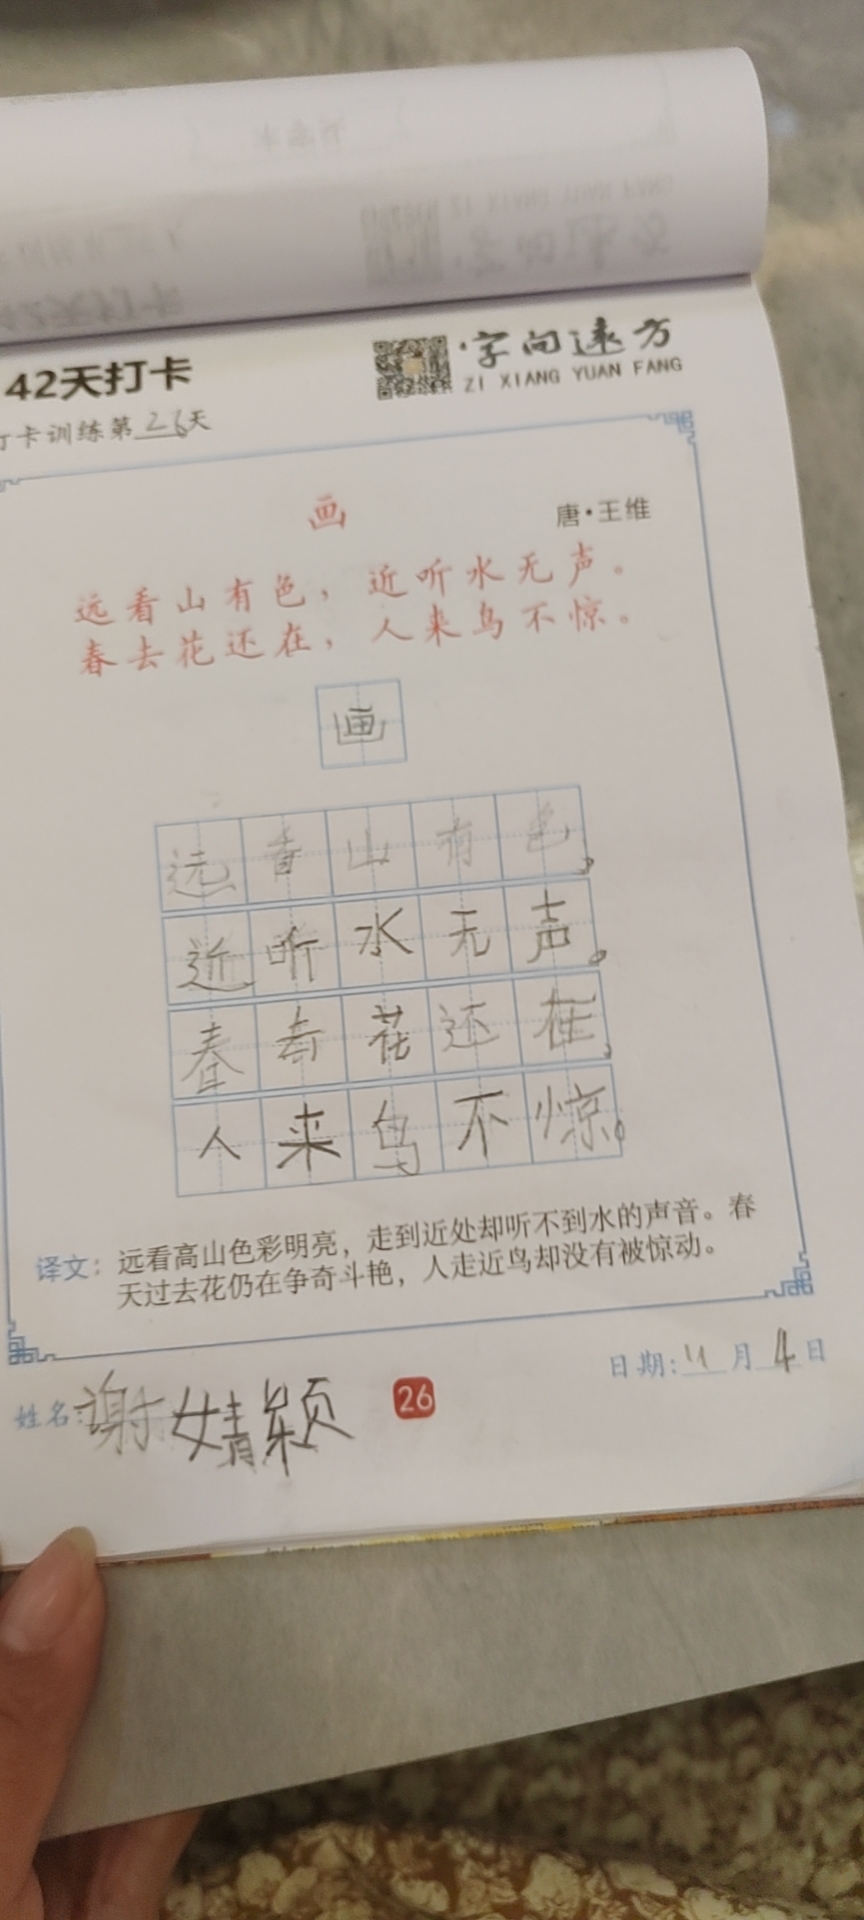 42天打卡
·字向远方
ZI XIANG YUAN FANG
打卡训练第26天
画
唐·王维
远看山有色，近听水无声。
春去花还在，人来鸟不惊。
画
远看山有色，
近听水无声。
春去花还在，
人来鸟不惊。
译文：远看高山色彩明亮，走到近处却听不到水的声音。春
天过去花仍在争奇斗艳，人走近鸟却没有被惊动。
姓名：谢婧颖
26
日期：11月4日